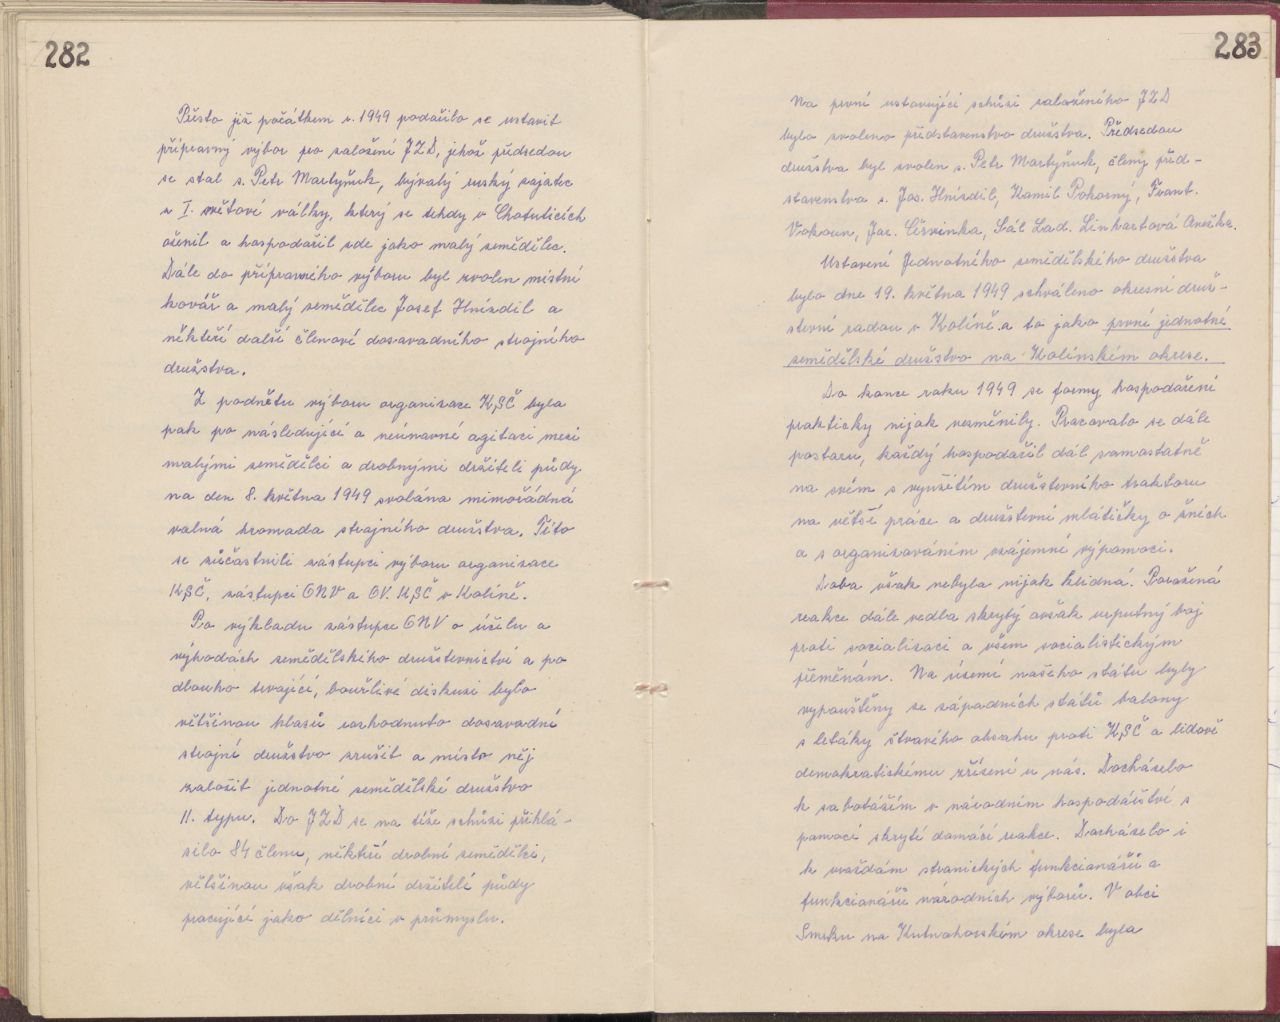 282
Přesto již počátkem r. 1949 podařilo se ustavit
přípravný výbor pro založení JZD, jehož předsedou
se stal s. Petr Martyňuk, bývalý ruský zajatec
z I. světové války, který se tehdy v Chotuticích
oženil a hospodařil zde jako malý zemědělec.
Dále do přípravného výboru byl zvolen místní
kovář a malý zemědělec Josef Hnízdil a
někteří další členové dosavadního strojního
družstva.
Z podnětu výboru organizace KSČ byla
pak po následující a neúnavné agitaci mezi
malými zemědělci a drobnými držiteli půdy
na den 8. května 1949 svolána mimořádná
valná hromada strojního družstva. Této
se zúčastnili zástupci výboru organizace
KSČ, zástupci ONV a OV. KSČ v Kolíně.
Po výkladu zástupce ONV o účelu a
výhodách zemědělského družstevnictví a po
dlouho trvající, bouřlivé diskusi bylo
většinou hlasů rozhodnuto dosavadní
strojní družstvo zrušit a místo něj
založit jednotné zemědělské družstvo
II. typu. Do JZD se na téže schůzi přihlá-
silo 84 členu, někteří drobní zemědělci,
většinou však drobní držitelé půdy
pracující jako dělníci v průmyslu.
283
Na první ustavující schůzi založeného JZD
bylo zvoleno představenstvo družstva. Předsedou
družstva byl zvolen s. Petr Martyňuk, členy před-
stavenstva s. Jos. Hnízdil, Kamil Pokorný, Frant.
Vokoun, Jar. Červinka, Sál Lad. Linhartová Anežka.
Ustavení Jednotného zemědělského družstva
bylo dne 19. května 1949 schváleno okresní druž-
stevní radou v Kolíně a to jako první jednotné
zemědělské družstvo na Kolínském okrese.
Do konce roku 1949 se formy hospodaření
prakticky nijak nezměnily. Pracovalo se dále
postaru, každý hospodařil dál samostatně
na svém s využitím družstevního traktoru
na větší práce a družstevní mlátičky o žních
a s organizováním vzájemné výpomoci.
Doba však nebyla nijak klidná. Poražená
reakce dále vedla skrytý avšak urputný boj
proti socializaci a všem socialistickým
přeměnám. Na území našeho státu byly
vypouštěny ze západních států balony
s letáky štvavého obsahu proti KSČ a lidově
demokratickému zřízení u nás. Docházelo
k sabotážím v národním hospodářství s
pomocí skryté domácí reakce. Docházelo i
k vraždám stranických funkcionářů a
funkcionářů národních výborů. V obci
Smrku na Kutnohorském okrese byla